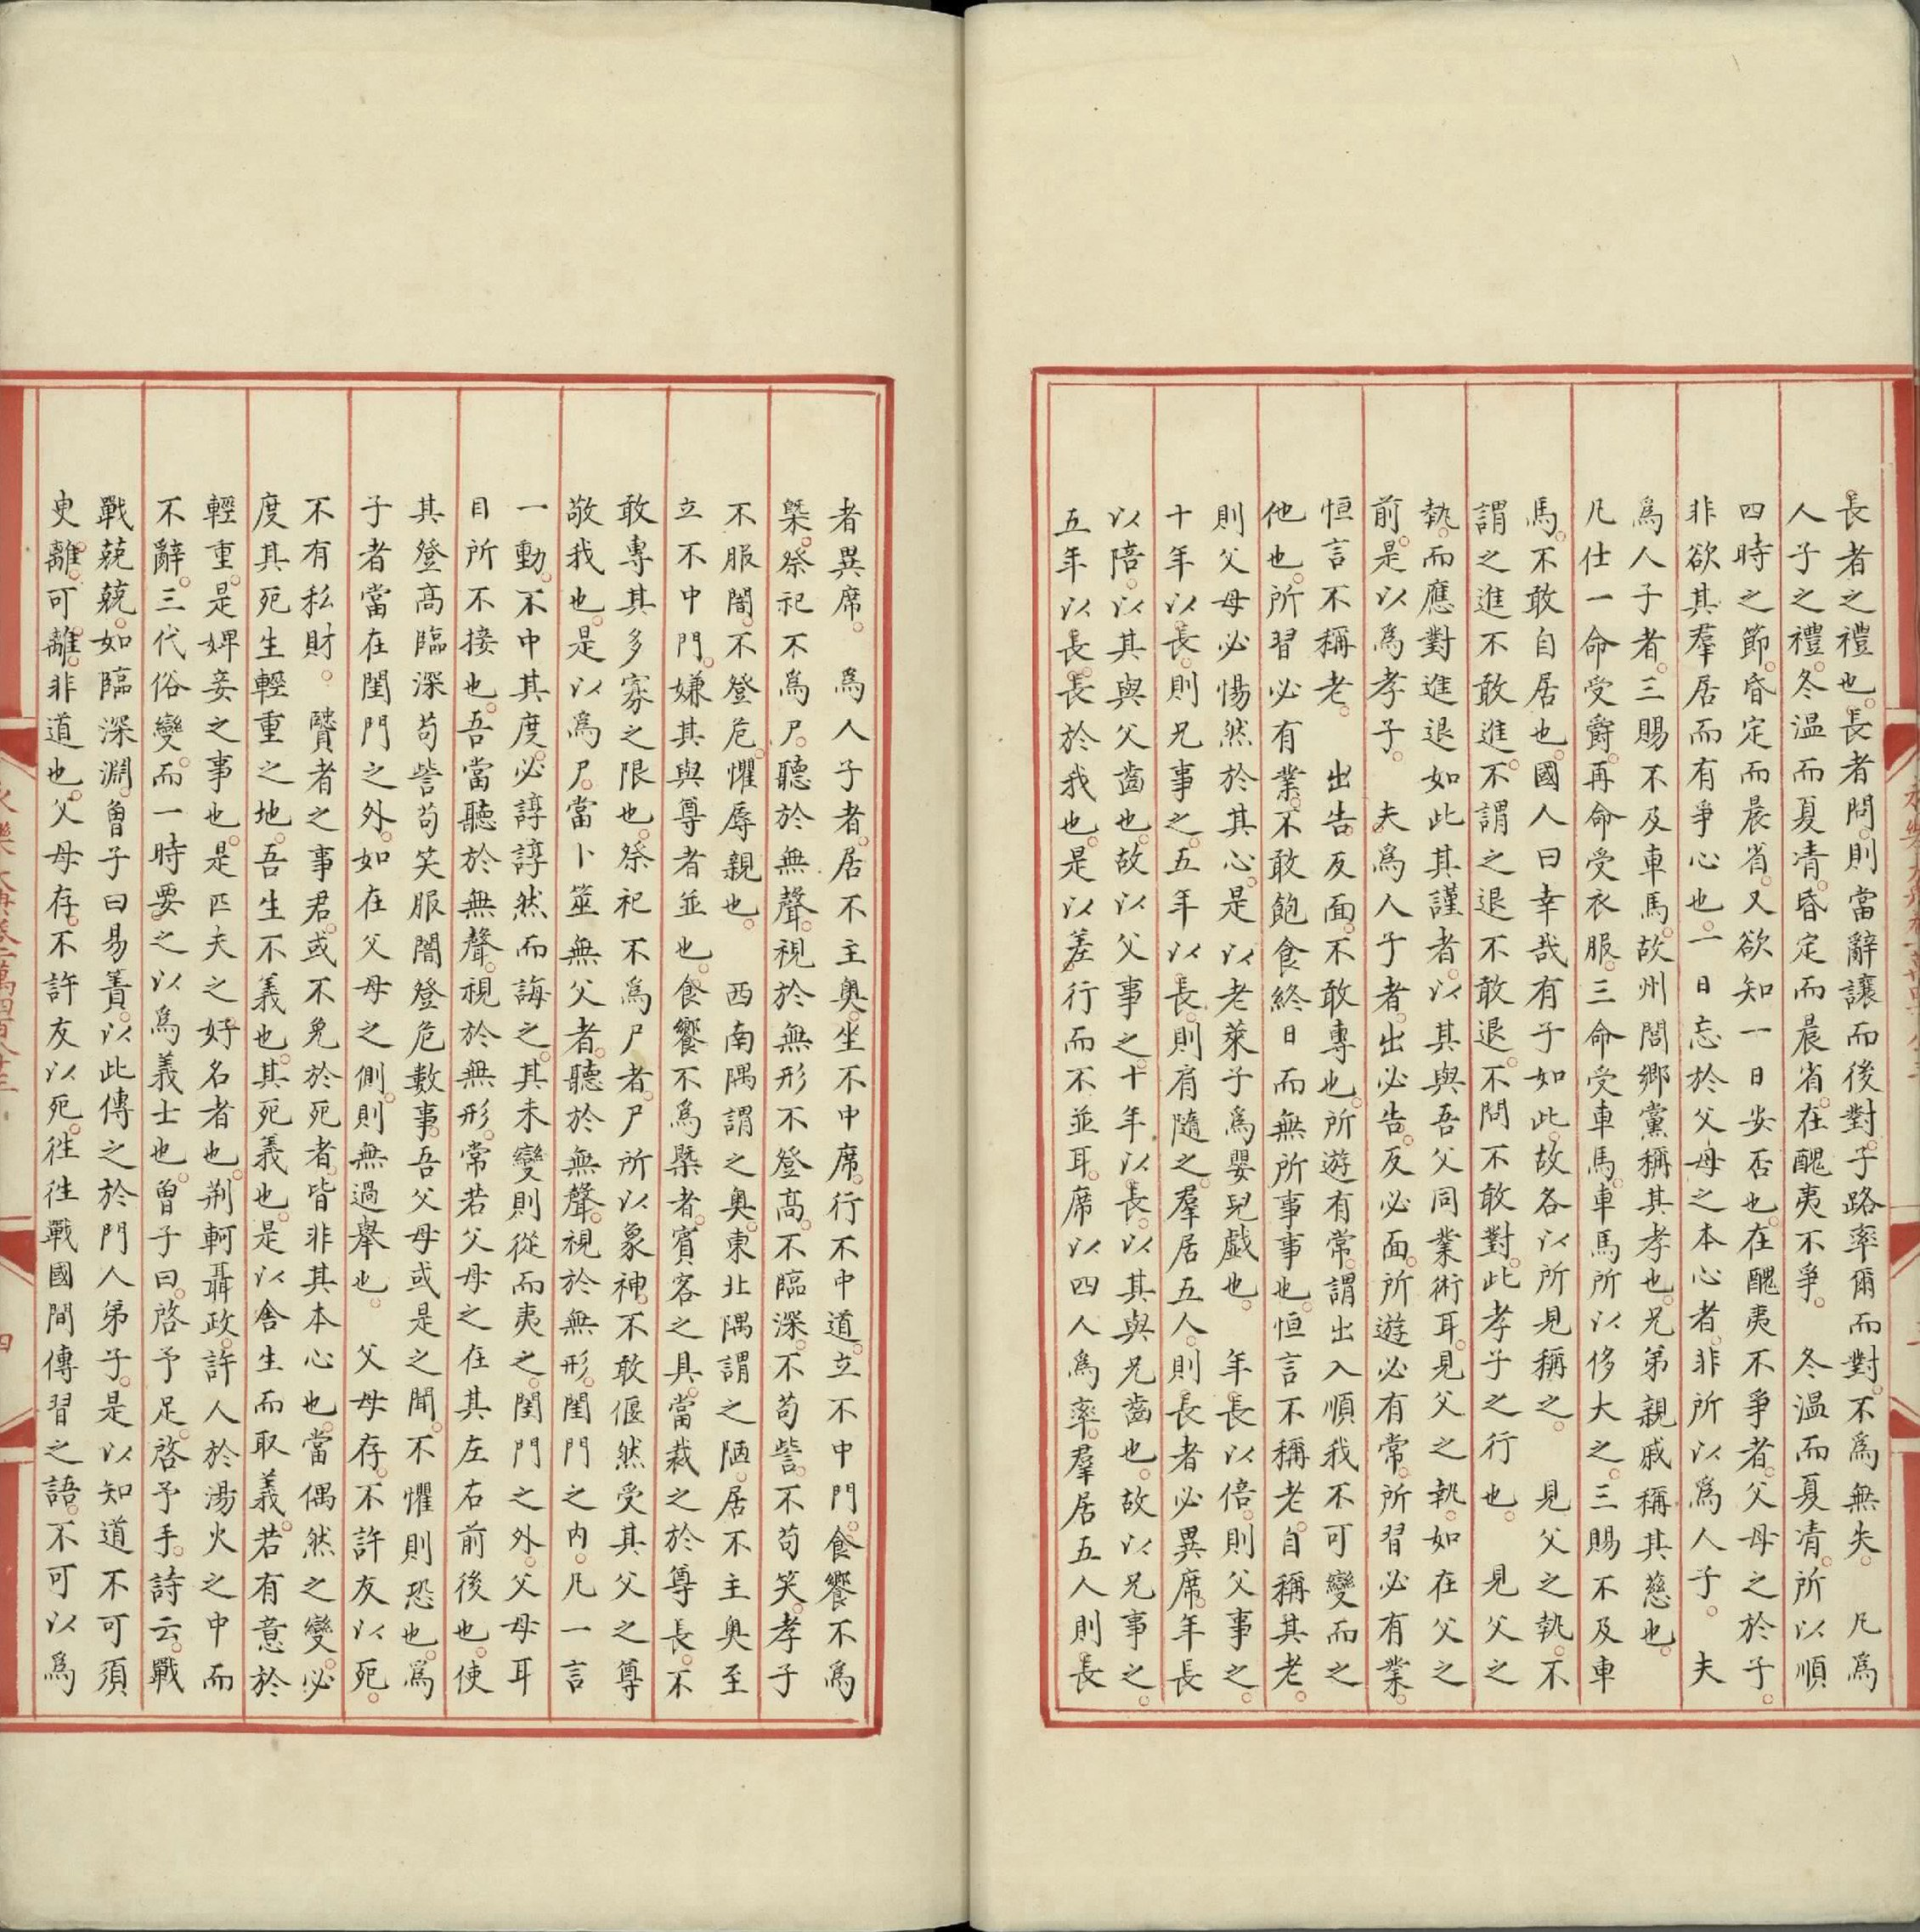 長者之禮也長者問則當辭讓而後對子路率爾而對不爲無失　凡爲
人子之禮冬温而夏凊昏定而晨省在醜夷不爭　冬温而夏凊所以順
四時之節昏定而晨省又欲知一日安否也在醜夷不爭者父母之於子
非欲其羣居而有爭心也一日忘於父母之本心者非所以爲人子　夫
爲人子者三賜不及車馬故州閭鄉黨稱其孝也兄弟親戚稱其慈也
凡仕一命受爵再命受衣服三命受車馬車馬所以侈大之三賜不及車
馬不敢自居也國人曰幸哉有子如此故各以所見稱之　見父之執不
謂之進不敢進不謂之退不敢退不問不敢對此孝子之行也　見父之
執而應對進退如此其謹者以其與吾父同業術耳見父之執如在父之
前是以爲孝子　夫爲人子者出必告反必面所遊必有常所習必有業
恒言不稱老　出告反面不敢專也所遊有常謂出入順我不可變而之
他也所習必有業不敢飽食終日而無所事事也恒言不稱老自稱其老
則父母必惕然於其心是以老萊子爲嬰兒戲也　年長以倍則父事之
十年以長則兄事之五年以長則肩隨之羣居五人則長者必異席年長
以陪以其與父齒也故以父事之十年以長以其與兄齒也故以兄事之
五年以長長於我也是以差行而不並耳席以四人爲率羣居五人則長
者異席　爲人子者居不主奥坐不中席行不中道立不中門食饗不爲
槩祭祀不爲尸聽於無聲視於無形不登高不臨深不苟訾不苟笑孝子
不服闇不登危懼辱親也　西南隅謂之奥東北隅謂之陋居不主奥至
立不中門嫌其與尊者並也食饗不爲槩者賓客之具當裁之於尊長不
敢專其多寡之限也祭祀不爲尸者尸所以象神不敢偃然受其父之尊
敬我也是以爲尸當卜筮無父者聽於無聲視於無形閨門之内凡一言
一動不中其度必諄諄然而誨之其未變則從而夷之閨門之外父母耳
目所不接也吾當聽於無聲視於無形常若父母之在其左右前後也使
其登高臨深苟訾苟笑服闇登危數事吾父母或是之聞不懼則恐也爲
子者當在閨門之外如在父母之側則無過舉也　父母存不許友以死
不有私財　贒者之事君或不免於死者皆非其本心也當偶然之變必
度其死生輕重之地吾生不義也其死義也是以舍生而取義若有意於
輕重是婢妾之事也是匹夫之好名者也荆軻聶政許人於湯火之中而
不辭三代俗變而一時要之以爲義士也曾子曰啓予足啓予手詩云戰
戰兢兢如臨深淵曾子曰易簀以此傳之於門人弟子是以知道不可須
臾離可離非道也父母存不許友以死徃徃戰國間傳習之語不可以爲